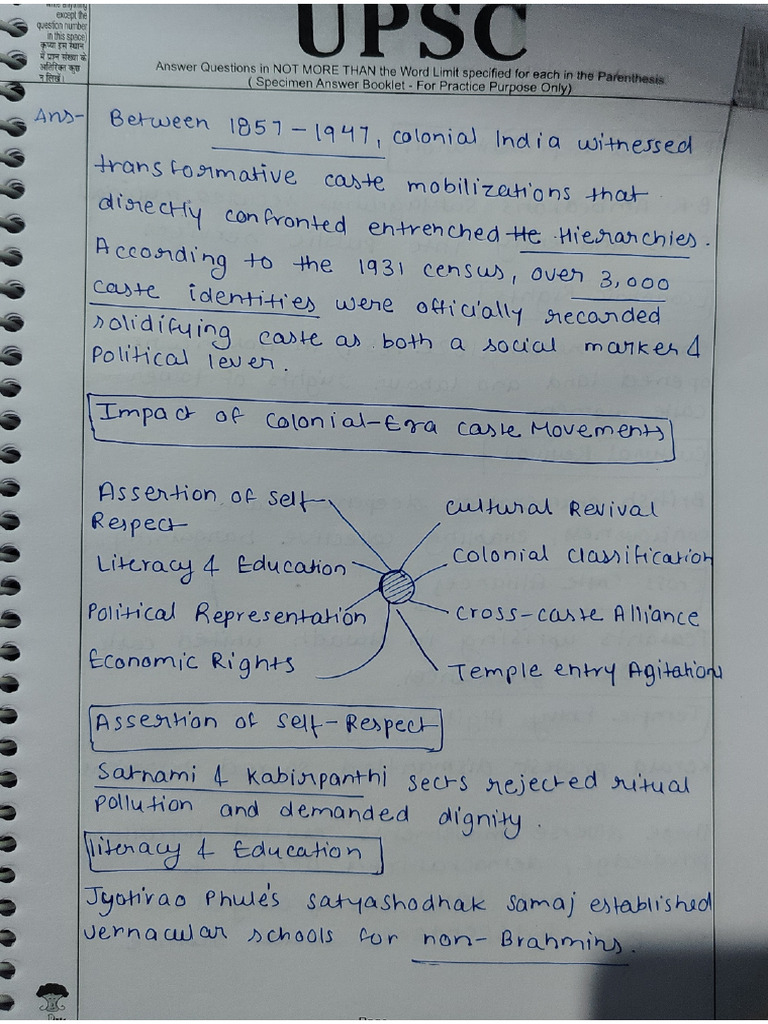 except the
question number
in this space)
कृपया इस स्थान
में प्रश्न संख्या के
अतिरिक्त कुछ
न लिखें।
UPSC
Answer Questions in NOT MORE THAN the Word Limit specified for each in the Parenthesis
( Specimen Answer Booklet - For Practice Purpose Only)
Ans- Between 1857-1947, colonial India witnessed
transformative caste mobilizations that
directly confronted entrenched He Hierarchies.
According to the 1931 census, over 3,000
caste identities were officially recorded
solidifying caste as both a social marker &
Political lever.
Impact of Colonial-Era Caste Movements
Assertion of Self-
Respect
Literacy & Education
Political Representation
Economic Rights
Cultural Revival
Colonial Classification
Cross-caste Alliance
Temple entry Agitation
Assertion of Self-Respect
Satnami & Kabirpanthi sects rejected ritual
pollution and demanded dignity.
literacy & Education
Jyotirao Phule's satyashodhak Samaj established
vernacular schools for non-Brahmins.